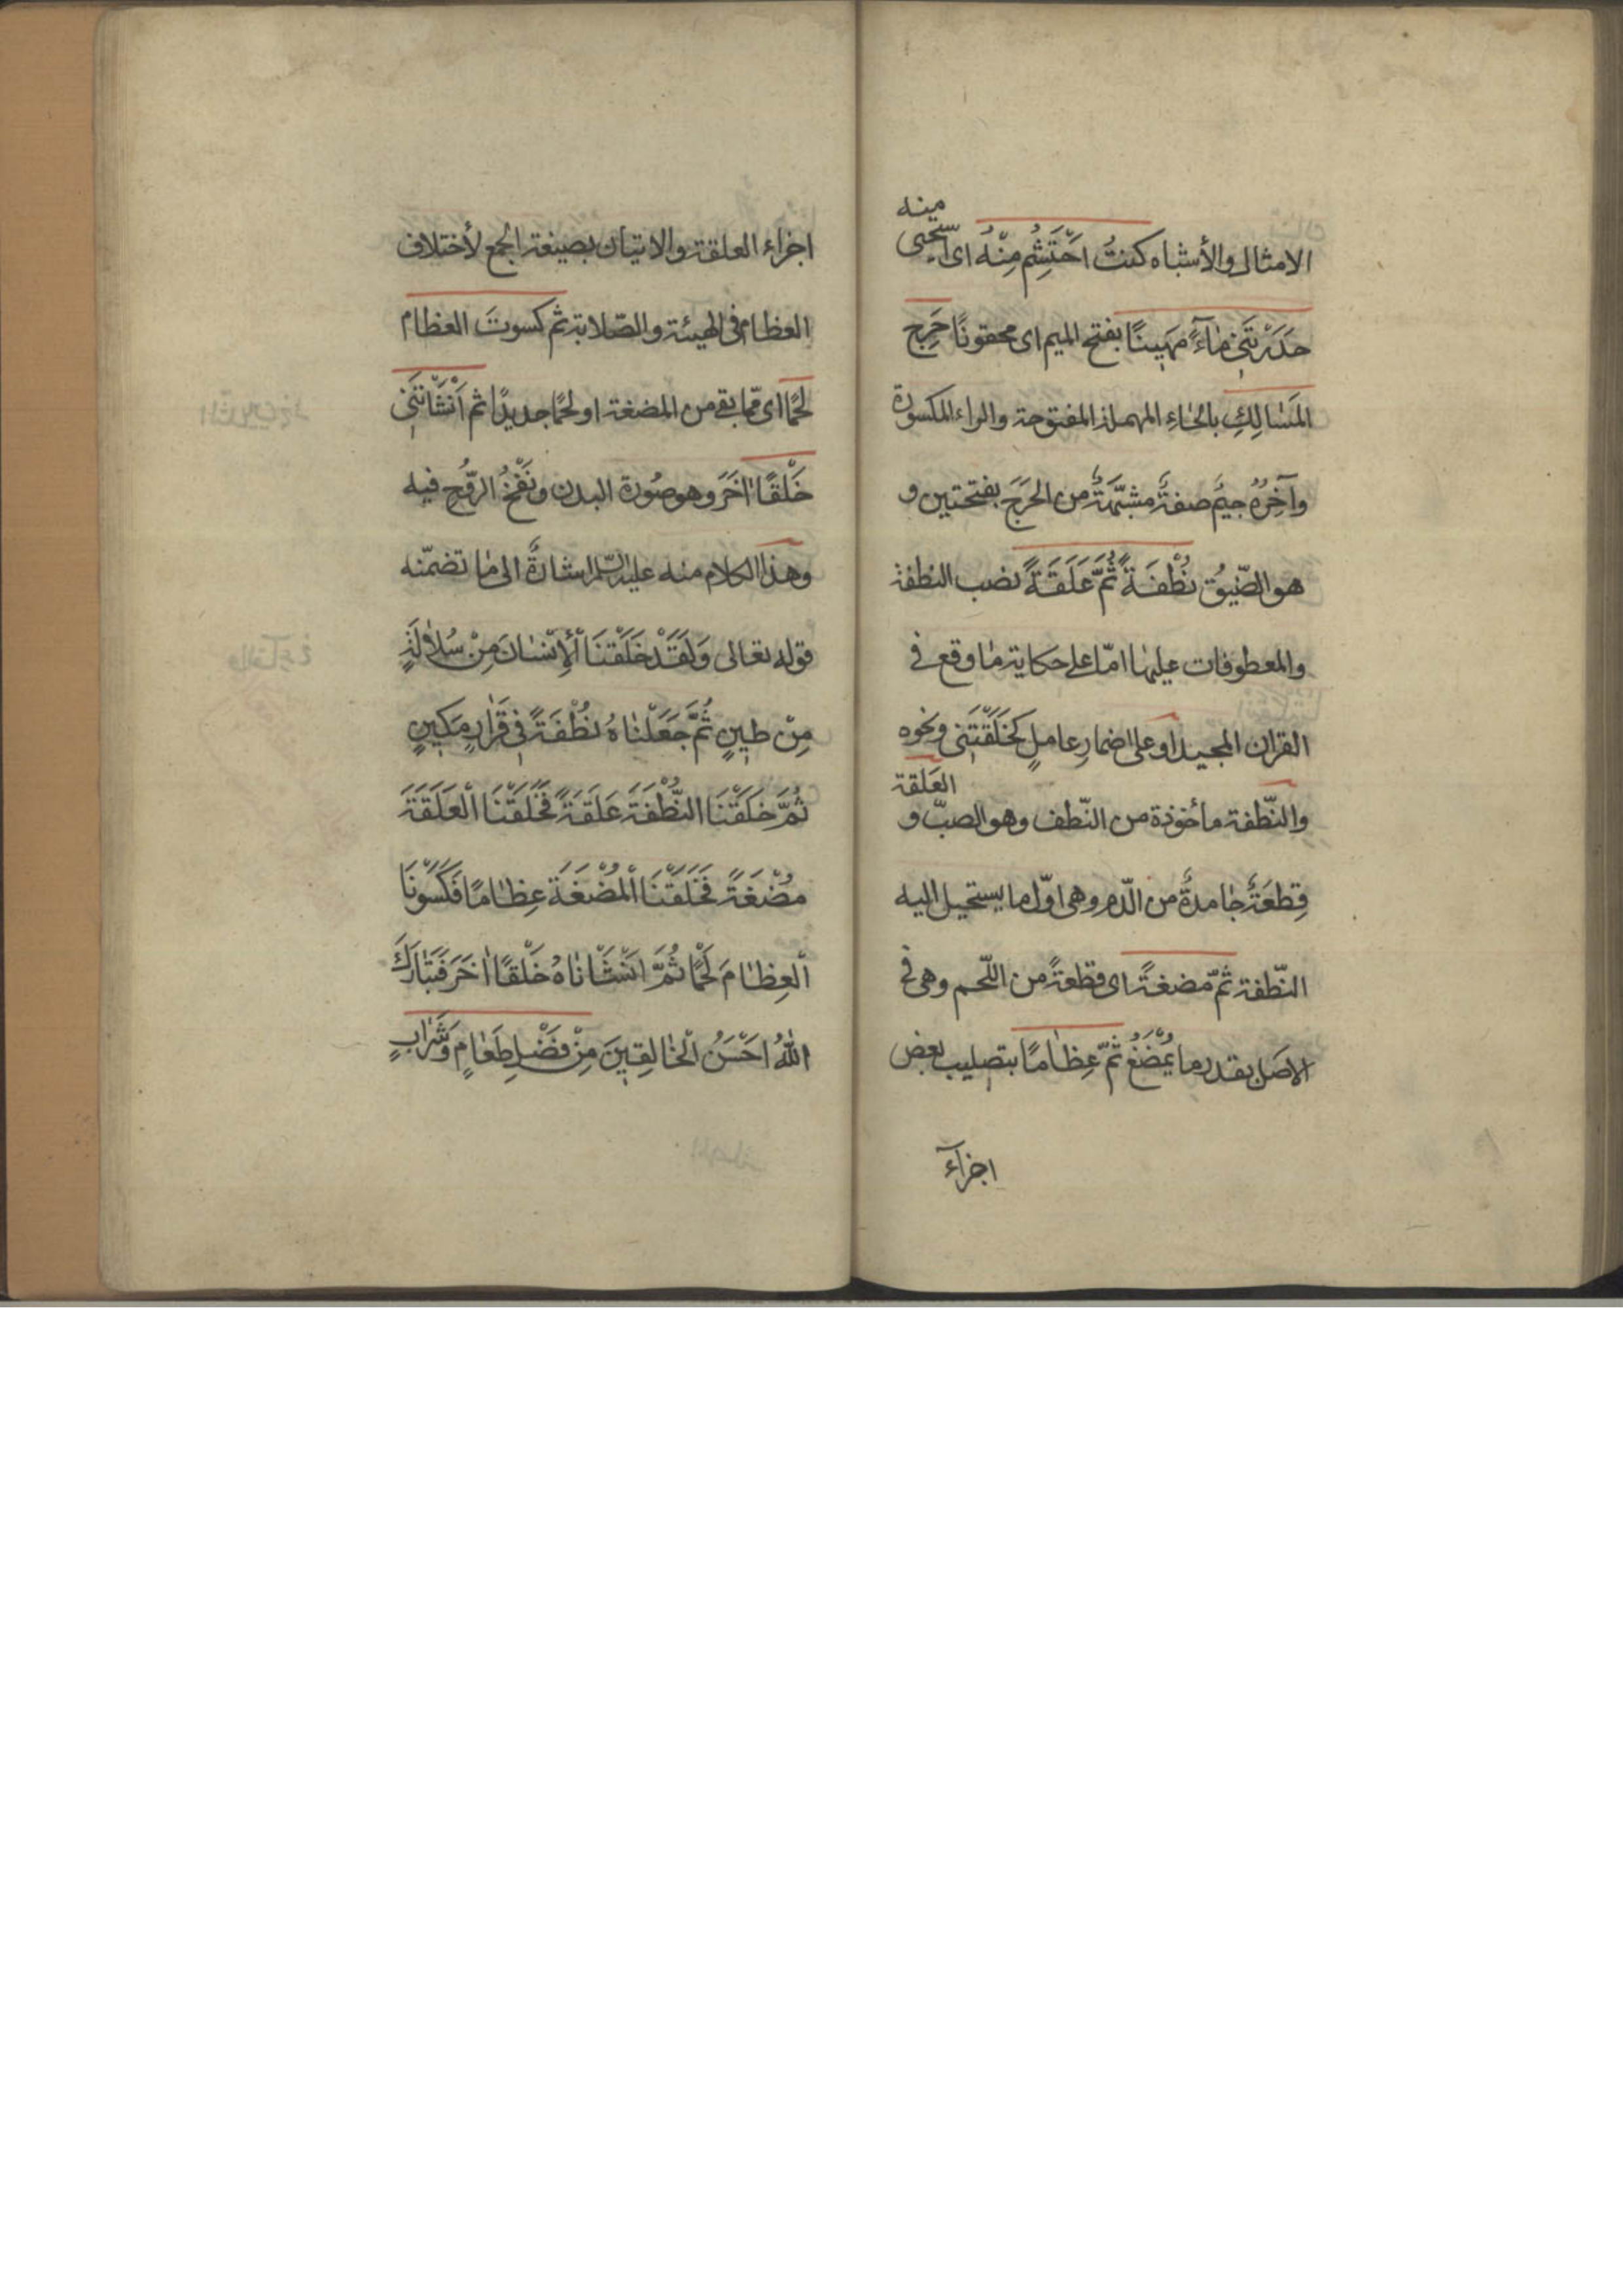 الامثال والأشباه كنتُ اَحْتَشِمُ مِنْهُ اى استحيى
منه
حَدَرْتَنِى مٰآءً مَهِينًا بفتح الميم اى محقونًا حَرِجِ
المَسٰالِكِ بالحٰاءِ المهملة المفتوحة والراء المكسورة
وآخِرُهُ جيمٌ صفةٌ مشبّهةٌ من الحَرَجِ بفتحتين و
هو الضّيق نُطْفَةً ثُمَّ عَلَقَةً نصب النطفة
والمعطوفات عليها امّا على حكاية مٰا وقع فى
القران المجيد او على اضمارِ عاملٍ كخَلَقْتَنى ونحوه
والنّطفة مأخوذة من النّطف وهو الصبّ و
العَلقة
قِطعَةٌ جٰامدةٌ من الدّم وهى اوّل ما يستحيل اليه
النّطفة ثمّ مضغةً اى قطعةً من اللّحم وهى فى
الاصل بقدر ما يُمْضَغُ ثمّ عِظٰامًا بتصليب بعض
اجزآء
اجزاء العلقة والاتيان بصيغة الجمع لأختلاف
العظام فى الهيئة والصّلابة ثم كسوتَ العظام
لحمًا اى ممّا بقى من المضغة او لحمًا جديدًا ثم اَنْشَأْتَنِى
خَلْقًا اٰخَرَ وهو صُورة البدن ونَفْخُ الرّوُحِ فيه
وهذا الكلام منه عليه السّلم اشارةٌ الى مٰا تضمّنه
قوله تعالى وَلَقَدْ خَلَقْنَا اْلأِنْسٰانَ مِنْ سُلاٰلَةٍ
مِنْ طِينٍ ثُمَّ جَعَلْنٰاهُ نُطْفَةً فِى قَرٰارٍ مَكِينٍ
ثُمَّ خَلَقْنَا النُّطْفَةَ عَلَقَةً فَخَلَقْنَا الْعَلَقَةَ
مُضْغَةً فَخَلَقْنَا الْمُضْغَةَ عِظٰامًا فَكَسَوْنَا
الْعِظٰامَ لَحْمًا ثُمَّ اَنْشَأْنٰاهُ خَلْقًا اٰخَرَ فَتَبٰارَكَ
اللهُ اَحْسَنُ الْخٰالِقِينَ مِنْ فَضْلِ طَعٰامٍ وَشَرٰابٍ